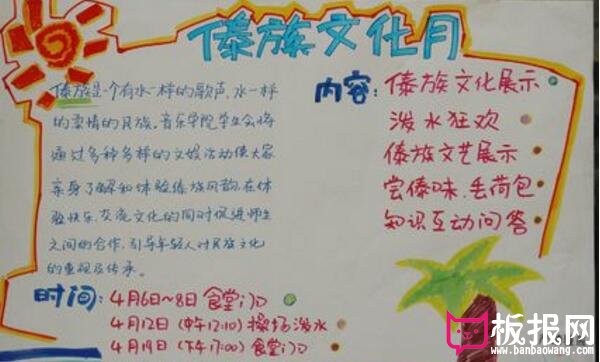 傣族文化月
傣族是一个有水一样的歌声，水一样
的柔情的民族。音乐学院学生会将
通过多种多样的文娱活动使大家
亲身了解和体验傣族风韵，在体
验快乐、交流文化的同时促进师生
之间的合作，引导年轻人对民族文化
的重视及传承。
内容：傣族文化展示
泼水狂欢
傣族文艺展示
尝傣味、丢荷包
知识互动问答
时间：4月6日~8日 食堂门口
4月12日（中午12:10）操场泼水
4月19日（下午17:00）食堂门口
板报网
www.banbaowang.com